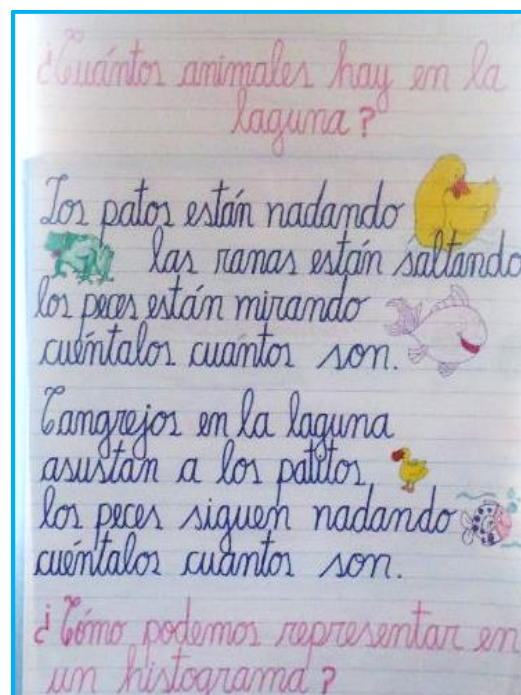 ¿Cuántos animales hay en la
laguna?
Los patos están nadando
las ranas están saltando
los peces están mirando
cuéntalos cuántos son.
Cangrejos en la laguna
asustan a los patitos
los peces siguen nadando
cuéntalos cuantos son.
¿Cómo podemos representar en
un histograma?